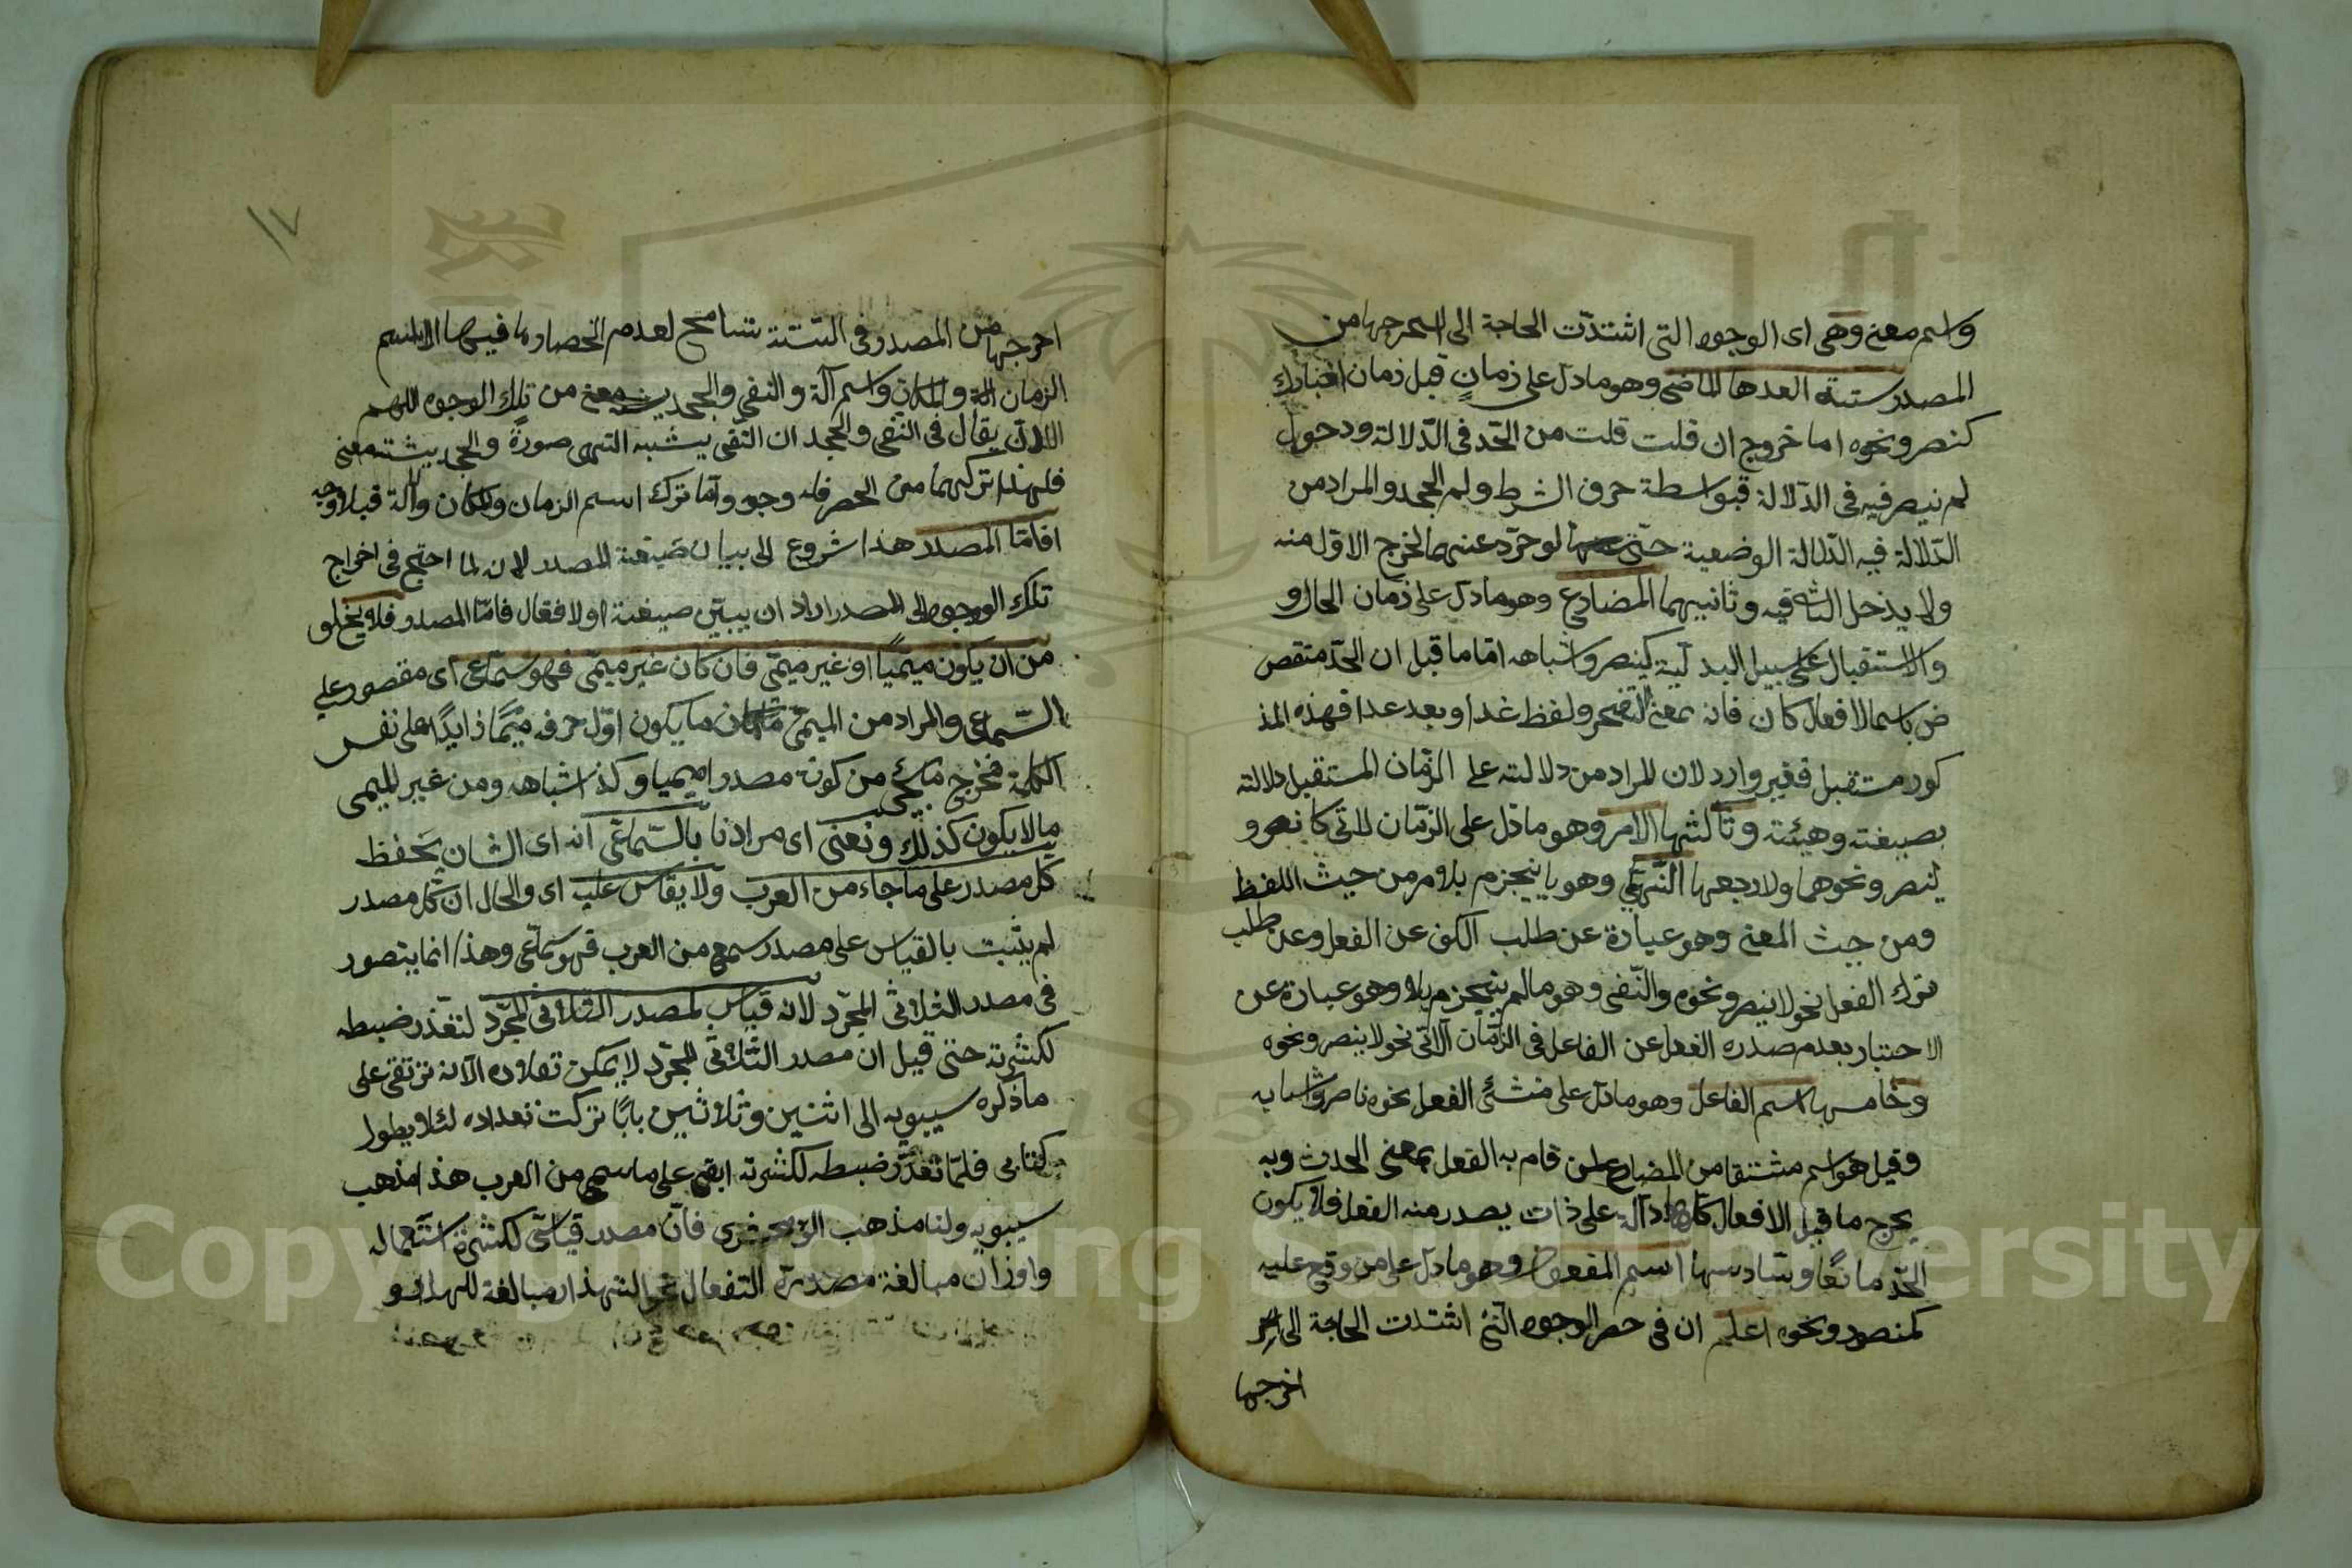 واسم معنى وهى اى الوجوه التى اشتدّت الحاجة الى من
المصدر ستة احدها الماضى وهو ما دلّ على زمانٍ قبل زمان اخبارك
كنصر ونحوه اما خروج ان قلت قلت من الحّد فى الدّلالة ودخول
لم ينصر فيه فى الدّلالة فبواسطة حرف الشرط ولم الجحد والمراد من
الدّلالة فيه الدّلالة الوضعية حتّى لو جرّد عنهما لخرج الاوّل منه
ولا يدخل الثا فيه وثانيهما المضارع وهو ما دلّ على زمان الحال و
والاستقبال على سبيل البدلية كينصر واشباهه امّا ما قيل ان الحّد منتقض
ض باسما الافعال كان فانه بمعنى اتضجر ولفظ غدا وبعد غدا فهذه المذ
كور مستقبل فغير وارد لان المراد من دلالته على الزمّان المستقبل دلالته
بصيغته وهيئته وثالثها الامر وهو ما دّل على الزمّان الاتى كانصر و
لينصر ونحوهما ورابعها النّهى وهو ما ينجزم بلا من حيث اللفظ
ومن حيث المعنى وهو عبارة عن طلب الكف عن الفعل وعن طلب
ترك الفعل نحو لا ينصر ونحوه والنّفى وهو ما لم ينجزم بلا وهو عبارة عن
الاخبار بعدم صدره الفعل عن الفاعل فى الزمّان الآتى نحو لا ينصر ونحوه
وخامسها اسم الفاعل وهو ما دلّ على منشئ الفعل نحوه ناصر واشبابه
وقيل هو اسم مشتقا من المضارع لمن قام به الفعل بمعنى الحدث وبه
يخرج ما قيل الافعال كلّها دآلة على ذات يصدر منه الفعل فلا يكون
الحّد مانعًا وسادسها اسم المفعول وهو ما دلّ على من وقع عليه
كمنصور ونحوه اعلم ان فى حصر الوجوه التى اشتدت الحاجة الى
اخرجها
١٧
اخرجها من المصدر فى السّتة تسامح لعدم انحصارها فيها اذ اسم
الزمان والمكان واسم آلة والنفى والجحد معنى من تلك الوجوه اللهم
الا ان يقال فى النفى والجحد ان النفى يشبه النهى صورةً والجحد يشبه معنى
فلهذا تركهما من الحصر فله وجه وامّا ترك اسم الزمان والمكان وآلة فبلا وجه
فامّا المصدر هذا شروع الى بيان صيغة المصدر لانه لما احتج فى اخراج
تلك الوجوه الى المصدر اراد ان يبيّن صيغته اولا فقال فامّا المصدر فلا يخلو
من ان يكون ميميًا او غير ميمّى فان كان غير ميمّى فهو سمّاعى اى مقصور على
السّماعى والمراد من الميمّى ما يكون اوّل حرفه ميمًا زايدًا على نفس
الكلمة فخرج من كونه مصدرا ميميا وكذا اشباهه ومن غير الميمى
ما لا يكون كذلك ونعنى اى مرادنا بالسّماعّى آنه اى الشان يحفظ
كلّ مصدر على ما جاء من العرب ولا يقاس عليه اى والحال ان كل مصدر
لم يثبت بالقياس على مصدر سمع من العرب فهو سمّاعى وهذا انما يتصور
فى مصدر الثلاثى المجرّد لانه قياس لمصدر الثلاثى المجرّد لتعّذر ضبطه
لكثرته حتى قيل ان مصدر الثلاثى المجرّد لا يمكن تعداده الّا انه ترتقى على
ما ذكره سيبويه الى اثنين وثلاثين بابًا تركت تعداده لئلا يطول
كتابى فلمّا تعذّر ضبطه لكثرته ابقى على ما سمع من العرب هذا مذهب
سيبويه ولنا مذهب الزمخشرى فانّ مصدر قياسّى لكثرة استعماله
واوزان مبالغة مصدره التفعال نحو التهذار مبالغة للهدر و